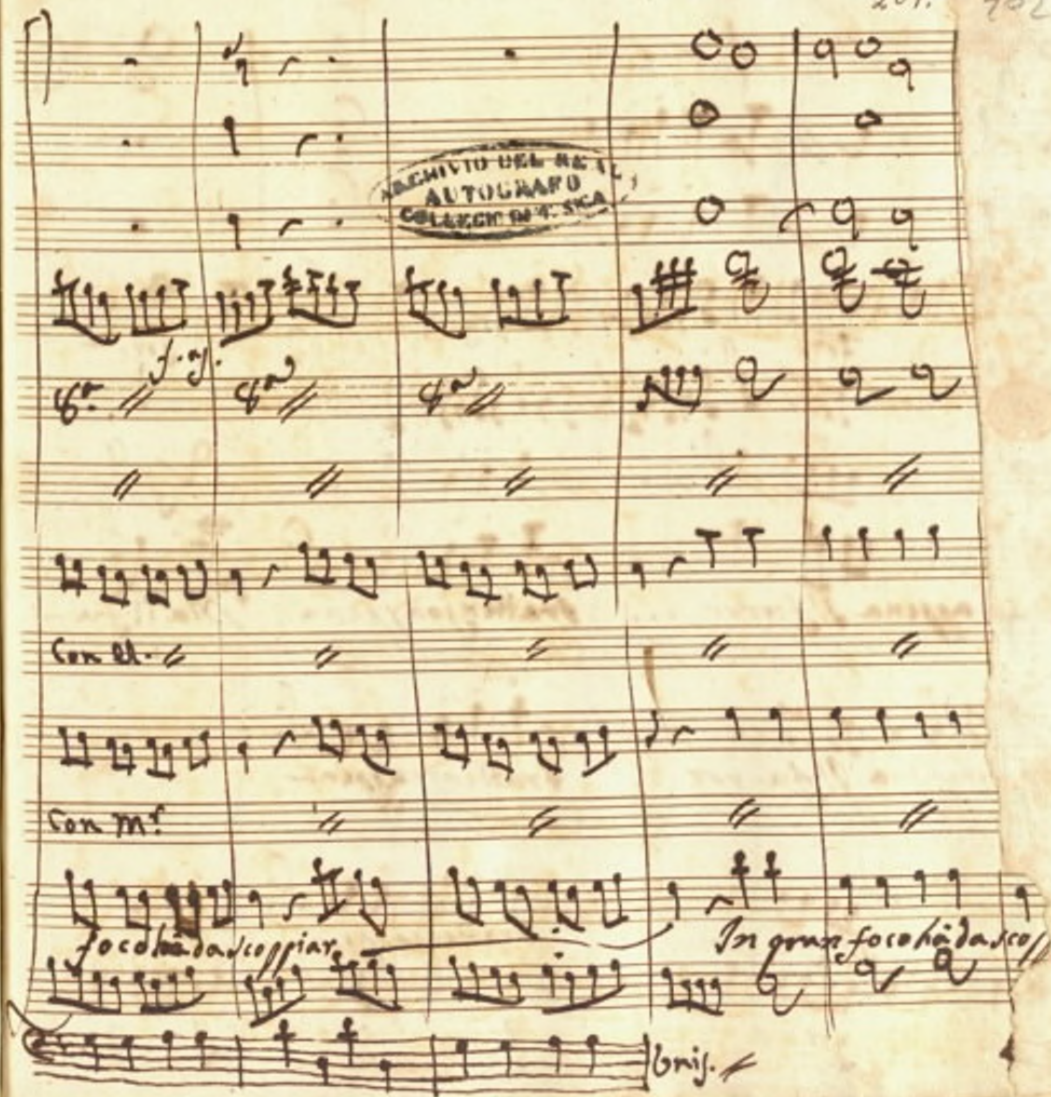 ARCHIVIO DEL REAL
AUTOGRAFO
COLLEGIO DI MUSICA
8ª
8ª
8ª
Con
Con Mr.
foco hà da scoppiar
In gran foco hà da scop
Unis.